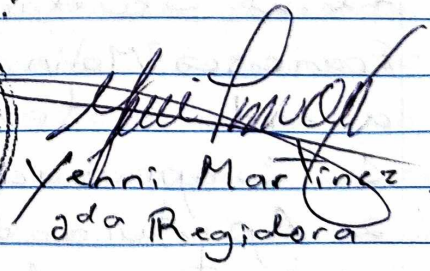 Yenni Martinez
2da Regidora